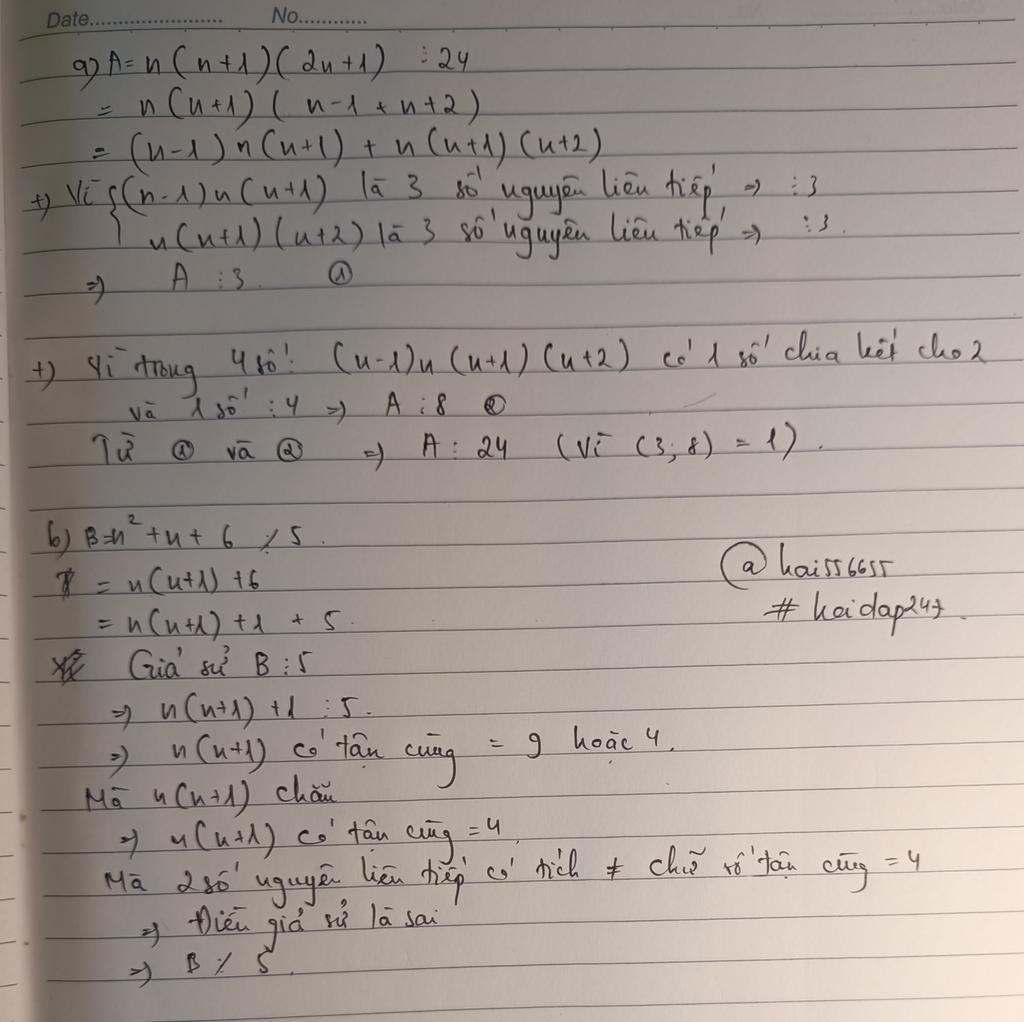 Date....................... No............
a) A= n(n+1)(2n+1) ⋮ 24
= n(n+1)(n-1+n+2)
= (n-1)n(n+1) + n(n+1)(n+2)
+) Vì { (n-1)n(n+1) là 3 số nguyên liên tiếp => ⋮ 3
n(n+1)(n+2) là 3 số nguyên liên tiếp => ⋮ 3.
=> A ⋮ 3. ①
+) Vì trong 4 số: (n-1)n(n+1)(n+2) có 1 số chia hết cho 2
và 1 số ⋮ 4 => A ⋮ 8 ②
Từ ① và ② => A ⋮ 24 (Vì (3;8) = 1).
b) B=n² + n + 6 ⋮̸ 5.
= n(n+1) + 6
= n(n+1) + 1 + 5.
@hai556655
#hoidap247.
Giả sử B ⋮ 5
=> n(n+1) + 1 ⋮ 5.
=> n(n+1) có tận cùng = 9 hoặc 4.
Mà n(n+1) chẵn
=> n(n+1) có tận cùng = 4
Mà 2 số nguyên liên tiếp có tích ≠ chữ số tận cùng = 4
=> Điều giả sử là sai
=> B ⋮̸ 5.